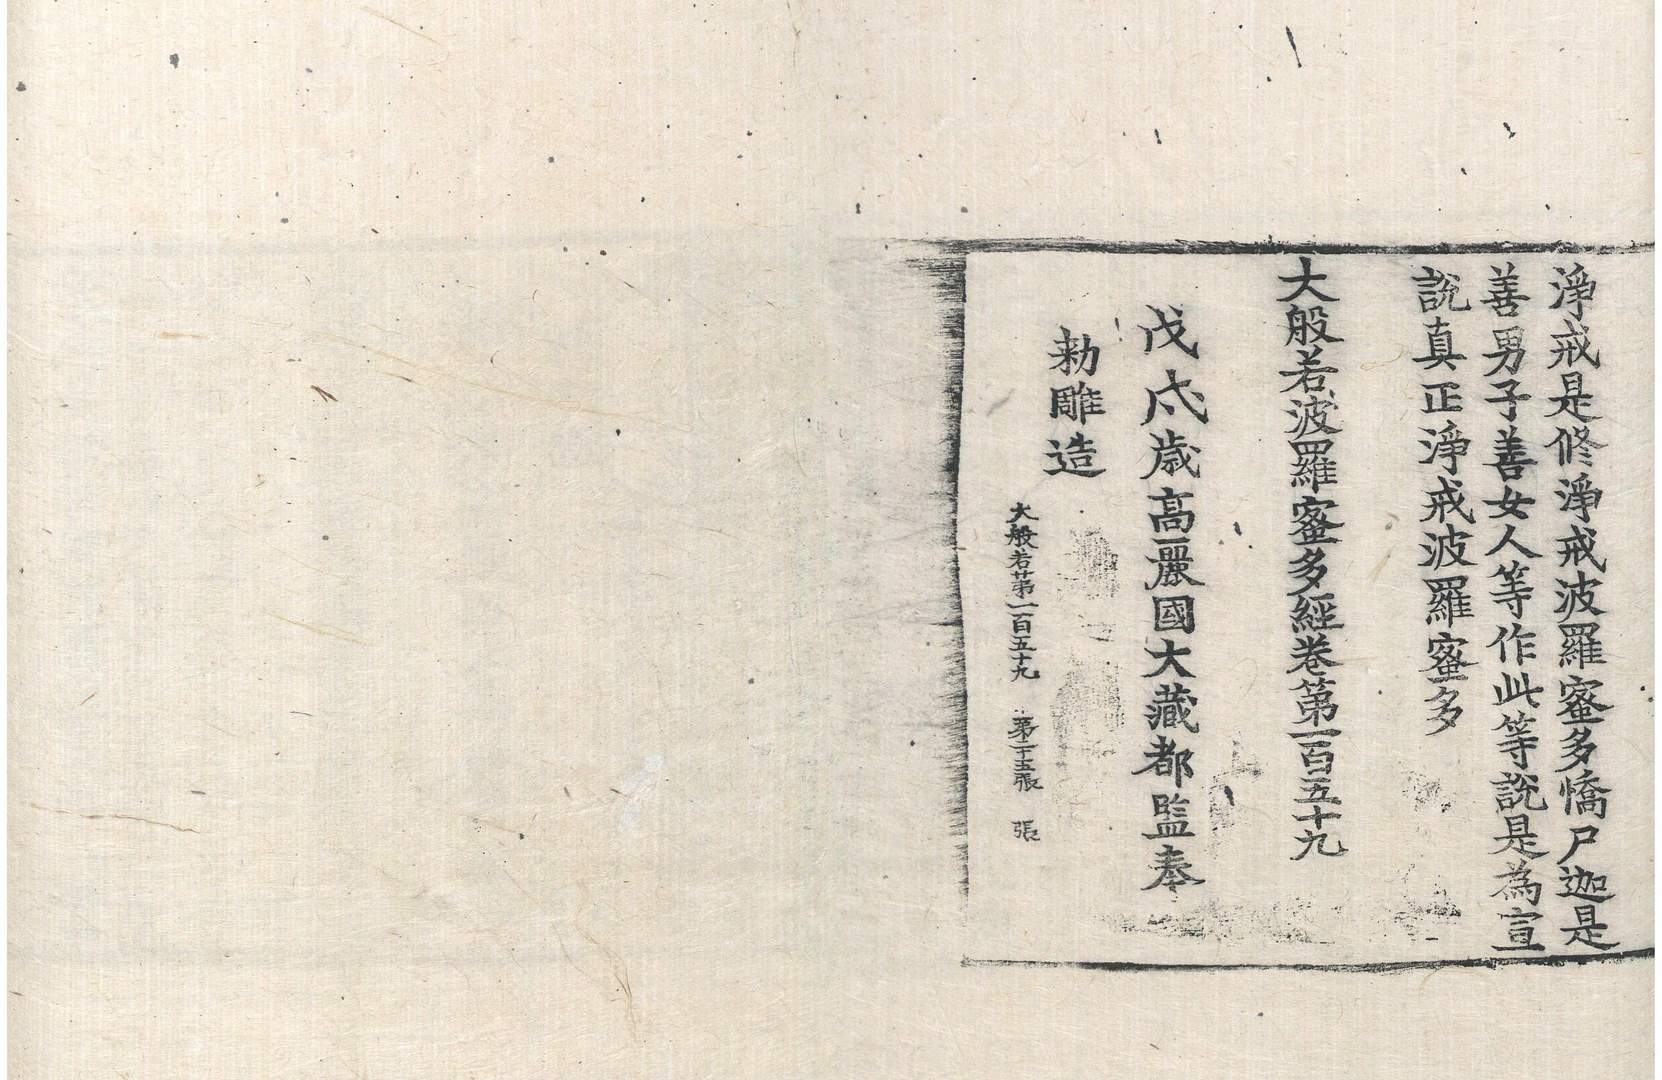 淨戒是修淨戒波羅蜜多憍尸迦是
善男子善女人等作此等說是為宣
說真正淨戒波羅蜜多
大般若波羅蜜多經卷第一百五十九
戊戌歲高麗國大藏都監奉
勅雕造
大般若第一百五十九 第二十五張 張